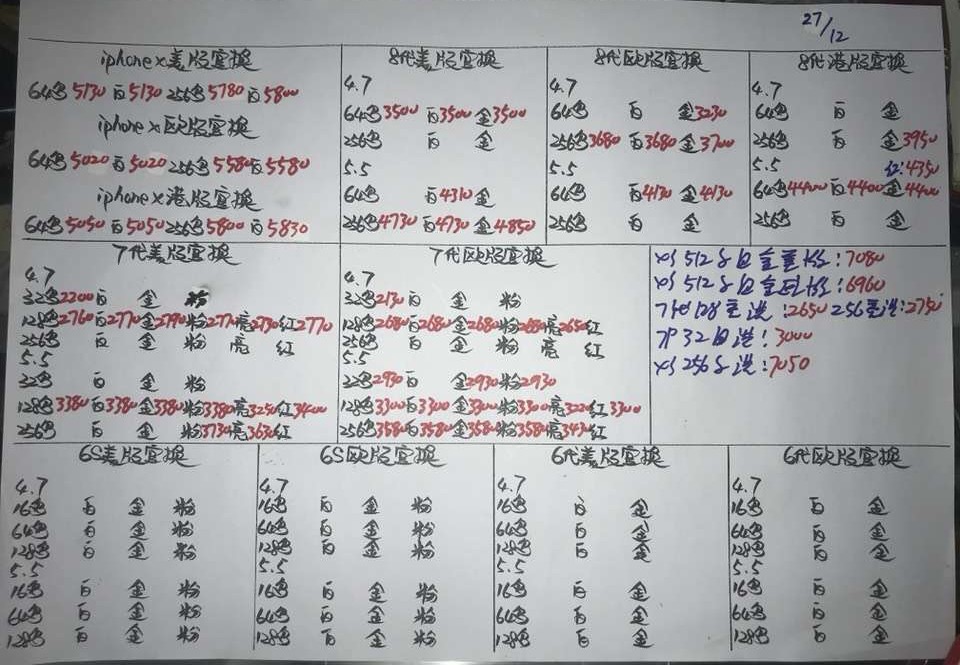 27/12
iphonex美版官换
64色5130 白5130 256色5780 白5800
iphonex欧版官换
64色5020 白5020 256色5580 白5580
iphonex港版官换
64色5050 白5050 256色5800 白5830
8代美版官换
4.7
64色3500 白3500 金3500
256色 白 金
5.5
64色 白4310 金
256色4730 白4730 金4850
8代欧版官换
4.7
64色 白 金3230
256色3680 白3680 金3700
5.5
64色 白4130 金4130
256色 白 金
8代港版官换
4.7
64色 白 金
256色 白 金3950
5.5 红:4350
64色4400 白4400 金4400
256色 白 金
7代美版官换
4.7
32色2200 白 金 粉
128色2760 白2770 金2790 粉2770 亮2730 红2770
256色 白 金 粉 亮 红
5.5
32色 白 金 粉
128色3380 白3380 金3380 粉3380 亮3250 红3400
256色 白 金 粉3730 亮3630 红
7代欧版官换
4.7
32色2130 白 金 粉
128色2680 白2680 金2680 粉2680 亮2650 红
256色 白 金 粉 亮 红
5.5
32色2930 白 金2930 粉2930
128色3300 白3300 金3300 粉3300 亮3220 红3300
256色3580 白3580 金3580 粉3580 亮3430 红
512 :7080
512 :6960
港:2650 256 港:2750
7P 32白港:3000
256 港:7050
6S美版官换
4.7
16色 白 金 粉
64色 白 金 粉
128色 白 金 粉
5.5
16色 白 金 粉
64色 白 金 粉
128色 白 金 粉
6S欧版官换
4.7
16色 白 金 粉
64色 白 金 粉
128色 白 金 粉
5.5
16色 白 金 粉
64色 白 金 粉
128色 白 金 粉
6代美版官换
4.7
16色 白 金
64色 白 金
128色 白 金
5.5
16色 白 金
64色 白 金
128色 白 金
6代欧版官换
4.7
16色 白 金
64色 白 金
128色 白 金
5.5
16色 白 金
64色 白 金
128色 白 金